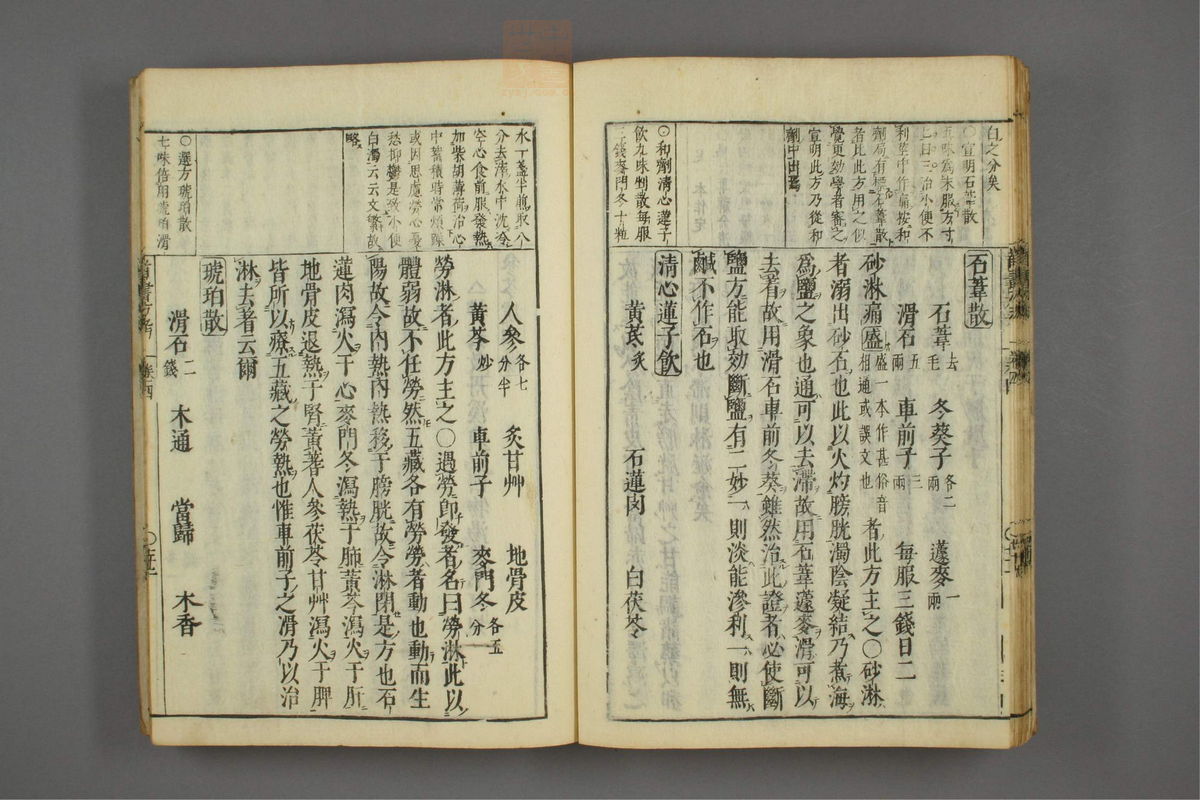 白之分矣
○宣明石葦散
五味為末服方寸
七日三治小便不
利茎中作痛按和
劑局有石葦散
者比此方用之似
覺更効學者審之
宣明此方乃從和
劑中出焉
○和劑清心蓮子
飲九味剉散每服
三錢麥門冬十粒
石葦散
石葦去毛 冬葵子各二兩 蘧麥一兩
滑石五兩 車前子三兩 每服三錢日二
砂淋痛盛盛一本作甚俗音相通或誤文也者此方主之○砂淋
者溺出砂石也此以火灼膀胱濁陰凝結乃煮海
為鹽之象也通可以去滯故用石葦蘧麥滑可以
去着故用滑石車前冬葵雖然治此證者必使斷
鹽方能取効斷鹽有二妙一則淡能滲利一則無
鹹不作石也
清心蓮子飲
黃芪炙 石蓮肉 白茯苓
水一盞半煎取八
分去滓水中沈冷
空心食前服發熱
加柴胡薄荷治心
中蓄積時常煩躁
或因思慮勞心憂
愁抑鬱是致小便
白濁云云文繁故
略
○選方琥珀散
七味倍用琥珀滑
人參各七分半 炙甘艸 地骨皮
黃芩炒 車前子 麥門冬各五分
勞淋者此方主之○遇勞即發者名曰勞淋此以
體弱故不任勞然五藏各有勞勞者動也動而生
陽故令內熱內熱移于膀胱故令淋閉是方也石
蓮肉瀉火于心麥門冬瀉熱于肺黃芩瀉火于肝
地骨皮退熱于腎黃蓍人參茯苓甘艸瀉火于脾
皆所以療五藏之勞熱也惟車前子之滑乃以治
淋去著云爾
琥珀散
滑石二錢 木通 當歸 木香